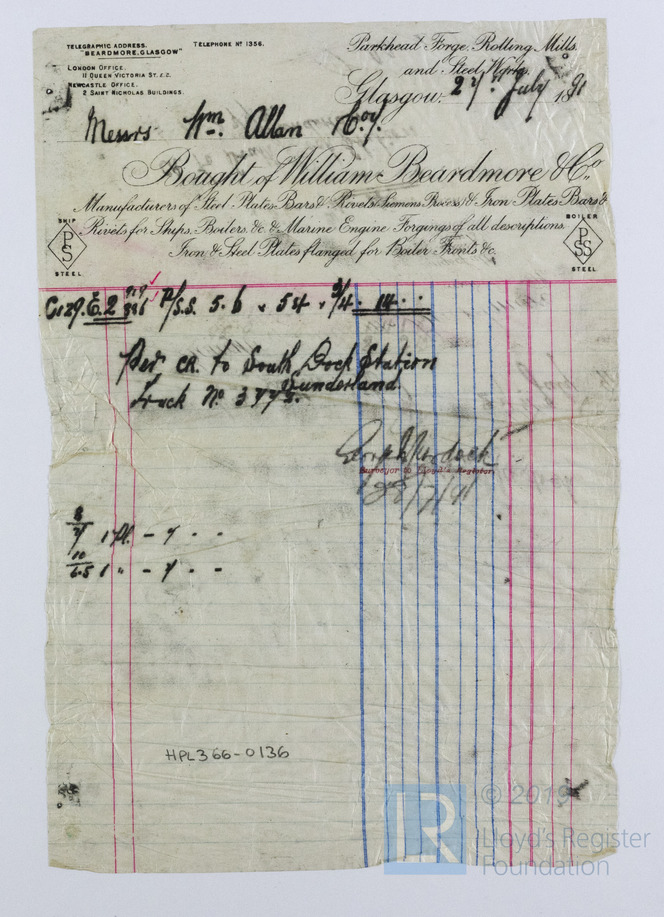 TELEGRAPHIC ADDRESS. TELEPHONE Nº 1356.
"BEARDMORE, GLASGOW"
LONDON OFFICE.
11 QUEEN VICTORIA ST. E.C.
NEWCASTLE OFFICE.
2 SAINT NICHOLAS BUILDINGS.
Parkhead Forge, Rolling Mills,
and Steel Works.
Glasgow, 27 July 1891
Messrs Wm. Allan & Coy.
Bought of William Beardmore & Co.,
Manufacturers of Steel Plates Bars & Rivets (Siemens Process) & Iron Plates Bars &
Rivets for Ships, Boilers, &c. & Marine Engine Forgings of all descriptions.
Iron & Steel Plates flanged for Boiler Fronts &c.
SHIP
PS
STEEL
BOILER
PSS
STEEL
E.2 P/S.S. 5.6 x 54 x 3/4 14
Per CR. to South Dock Station
Sunderland.
Truck No.
Surveyor to Lloyd's Register
28/7/91
8
7 1 Pl. - 7 - -
10
6.5 1 " - 7 - -
HPL366-0136
© 2019
Lloyd's Register
Foundation
LR